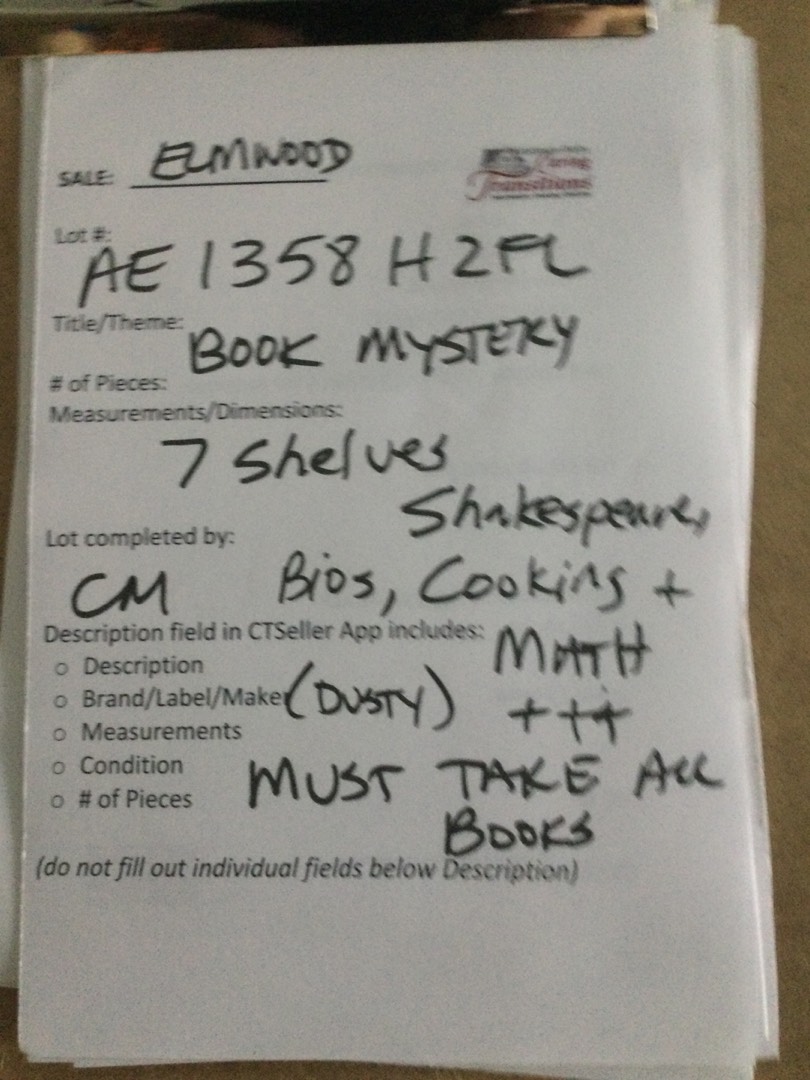 SALE: ELMWOOD
Caring
Transitions
Lot #:
AE 1358 H2FL
Title/Theme:
BOOK MYSTERY
# of Pieces:
Measurements/Dimensions:
7 Shelves
Shakespeare,
Lot completed by:
CM Bios, Cooking +
Description field in CTSeller App includes: MATH
o Description
o Brand/Label/Maker (DUSTY) +++
o Measurements
o Condition MUST TAKE ALL
o # of Pieces BOOKS
(do not fill out individual fields below Description)